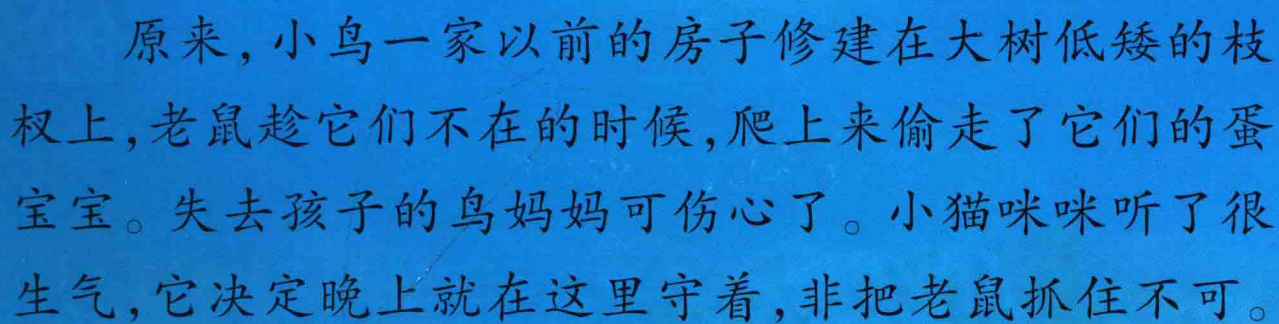 原来，小鸟一家以前的房子修建在大树低矮的枝
杈上，老鼠趁它们不在的时候，爬上来偷走了它们的蛋
宝宝。失去孩子的鸟妈妈可伤心了。小猫咪咪听了很
生气，它决定晚上就在这里守着，非把老鼠抓住不可。